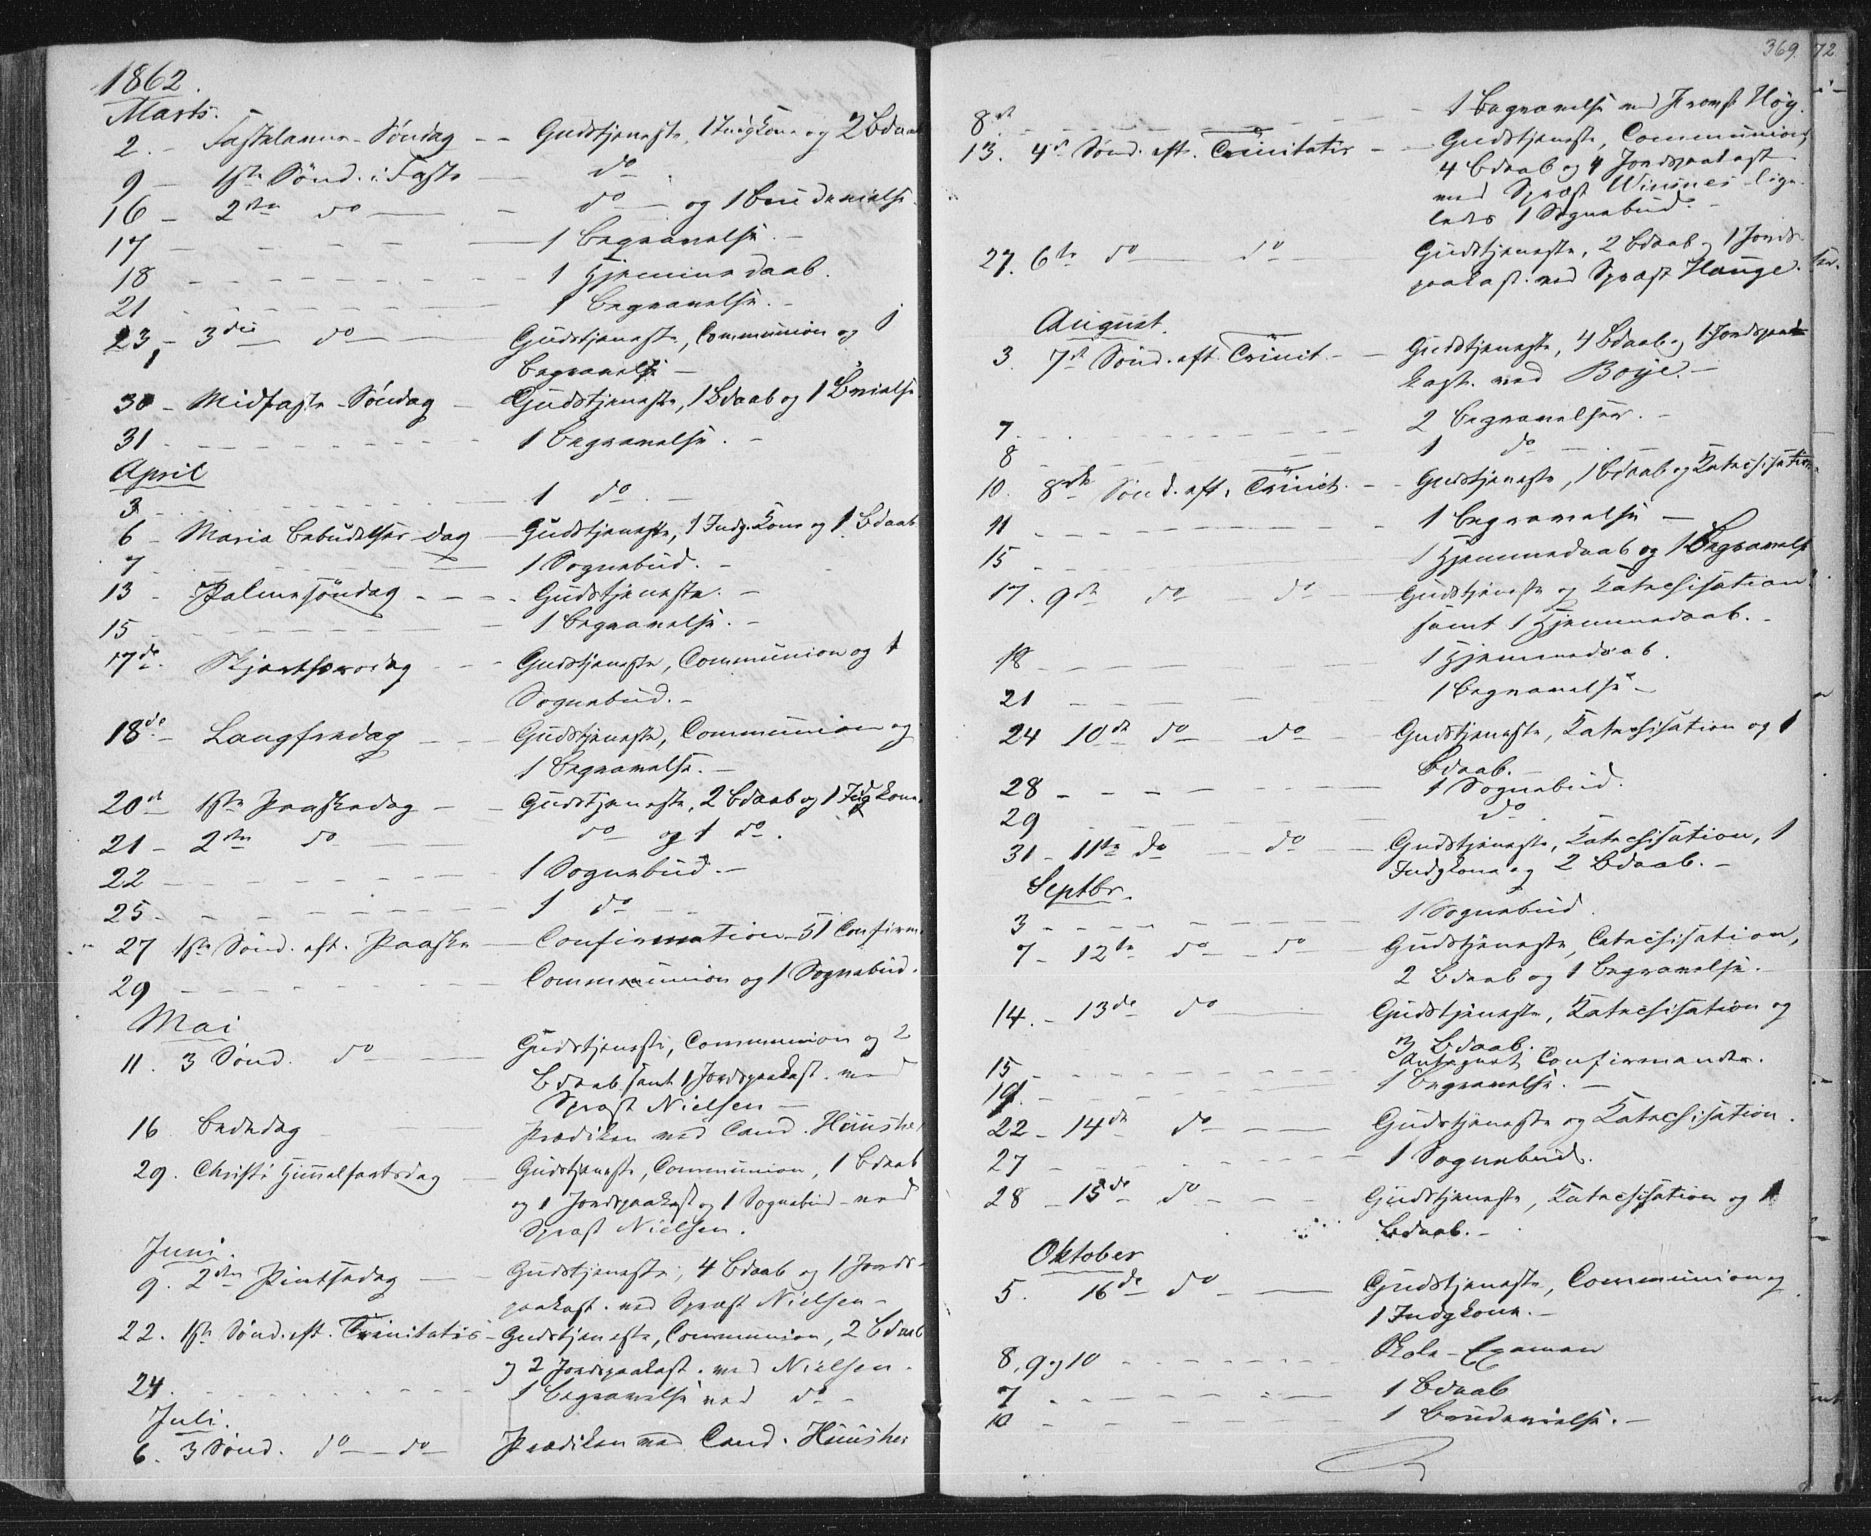 1862.
Marts.
2. - Fastelavns-Søndag - - Gudstjeneste, 1 Indgkone og 2 Bdaab
9 - 1ste Sønd. i Faste - do
16 - 2den do - do - og 1 Brudevielse.
17 - 1 Begravelse. -
18 - 1 Hjemmedaab.
21 - 1 Begravelse. -
23, - 3die do - Gudstjeneste, Communion og 1
Begravelse -
30 - Midfaste-Søndag - Gudstjeneste, 1 Bdaab og 1 Bvielse
31 - 1 Begravelse. -
April
3 - 1 do. -
6 - Maria Bebudelses-Dag - Gudstjeneste, 1 Indg.Kone og 1 Bdaab
7 - 1 Sognebud. -
13 - Palmesøndag - - - Gudstjeneste. -
15 - 1 Begravelse. -
17de. Skjertorsdag - - Gudstjeneste, Communion og 1
Sognebud. -
18de - Langfredag - - Gudstjeneste, Communion og
1 Begravelse. -
20de 1ste Paaskedag - - Gudstjeneste, 2 Bdaab og 1 Idgkone.
21 - 2den do - do og 1 do.
22 - 1 Sognebud. -
25 - 1 do -
27 1ste Sønd. eft. Paaske - Confirmation - 31 Confirm.
29 - Communion og 1 Sognebud.
Mai
11. 3 Sønd. do - Gudstjeneste, Communion og 2
Bdaab samt 1 Jordspaakast. ved
Sprest Nielsen -
16 Bededag - Prædiken ved Cand. Huusher
29. Christi Himmelfartsdag - Gudstjeneste, Communion, 1 Bdaab
og 1 Jordspaakast og 1 Sognebud - ved
Sprest Nielsen.
Juni.
9. 2den Pintsedag - Gudstjeneste, 4 Bdaab og 1 Jords-
paakast. ved Sprest Nielsen -
22. 1ste Sønd. eft. Trinitatis - Gudstjeneste, Communion, 2 Bdaab
og 2 Jordspaakast. ved Nielsen.
24. - 1 Begravelse ved do -
Juli.
6. 3 Sønd. do - do Prædiken ved Cand. Huusher
369. 72
8de - 1 Begravelse ved Provst Høg.
13. 4de Sønd. eft. Trinitatis - - Gudstjeneste, Communion,
4 Bdaab og 4 Jordspaakast
ved Sprest Winsnes - lige-
ledes 1 Sognebud. -
27. 6te do do Gudstjeneste, 2 Bdaab og 1 Jords-
paakast. ved Sprest Hauge.
August.
3. 7de Sønd. eft. Trinit. - - Gudstjeneste, 4 Bdaab og 1 Jordspaa-
kast. ved Boije. -
7. - 2 Begravelser. -
8 - 1 do -
10. 8nde Sønd. eft. Trinit. - - Gudstjeneste, 1 Bdaab og Katechisation.
11 - 1 Begravelse -
15 - 1 Hjemmedaab og 1 Begravelse
17. 9de do do - Gudstjeneste og Katechisation
samt 1 Hjemmedaab. -
18 - 1 Hjemmedaab.
21 - 1 Begravelse -
24 10de do do - Gudstjeneste, Katechisation og 1
Bdaab. -
28 - 1 Sognebud.
29 - do.
31 - 11te do - do - Gudstjeneste, Katechisation, 1
Indgkone og 2 Bdaab. -
Septbr.
3 - 1 Sognebud.
7 - 12te do - do - Gudstjeneste, Catechisation,
2 Bdaab og 1 Begravelse. -
14. - 13de do - Gudstjeneste, Katechisation og
3 Bdaab.
15 - Antegnet Confirmander.
19. - 1 Begravelse. -
22 - 14de do - Gudstjeneste og Katechisation.
27 - 1 Sognebud.
28 - 15de do - Gudstjeneste, Katechisation og 1
Bdaab. -
Oktober
5. 16de do - Gudstjeneste, Communion og
1 Indgkone. -
8, 9 og 10 - Skole-Examen
7 - 1 Bdaab
10 - 1 Brudevielse. -